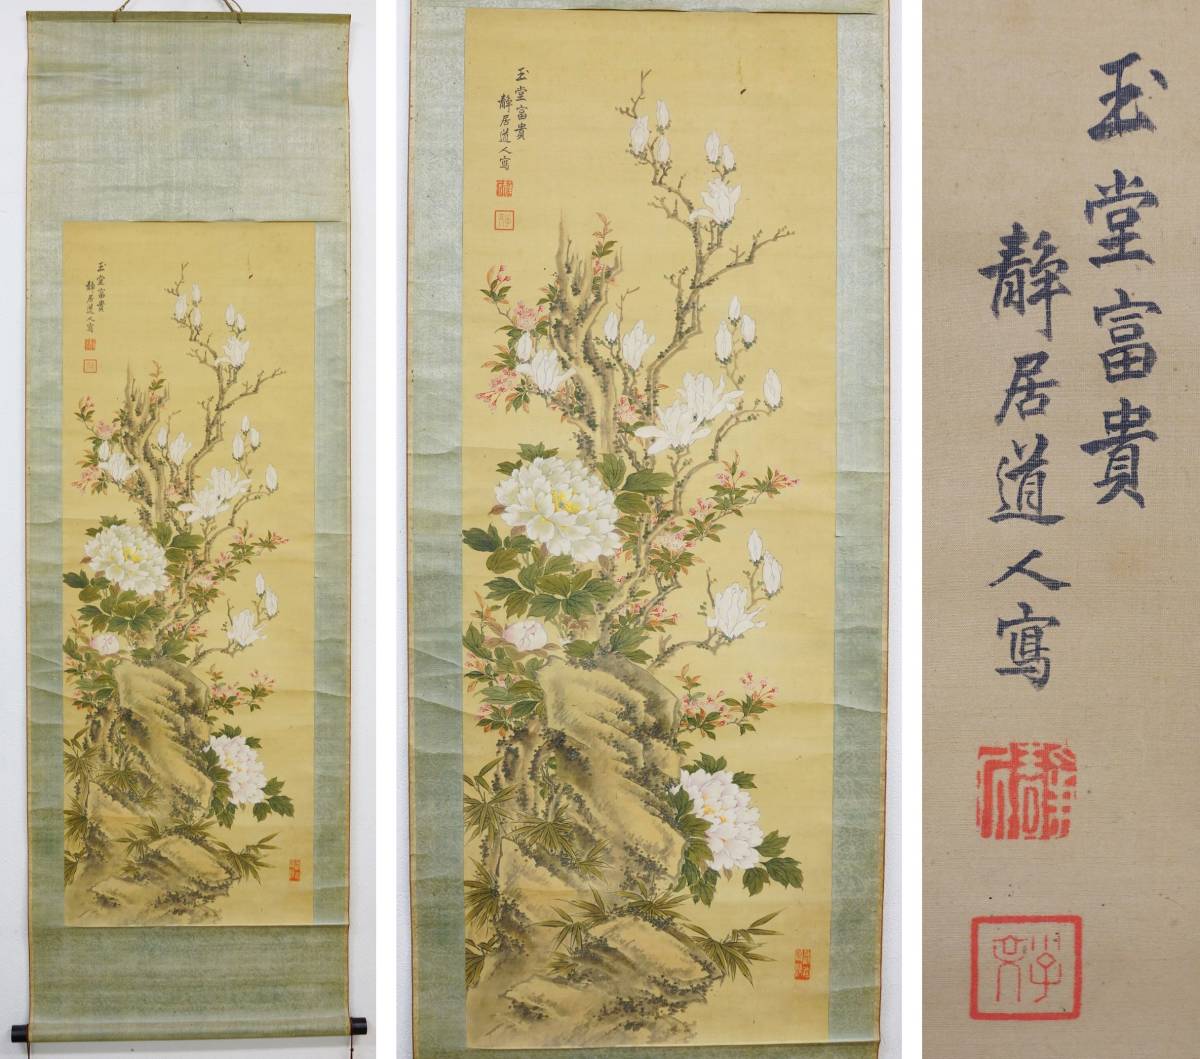 玉堂富貴
静居道人寫
玉堂富貴
静居道人寫
玉堂富貴
静居道人寫